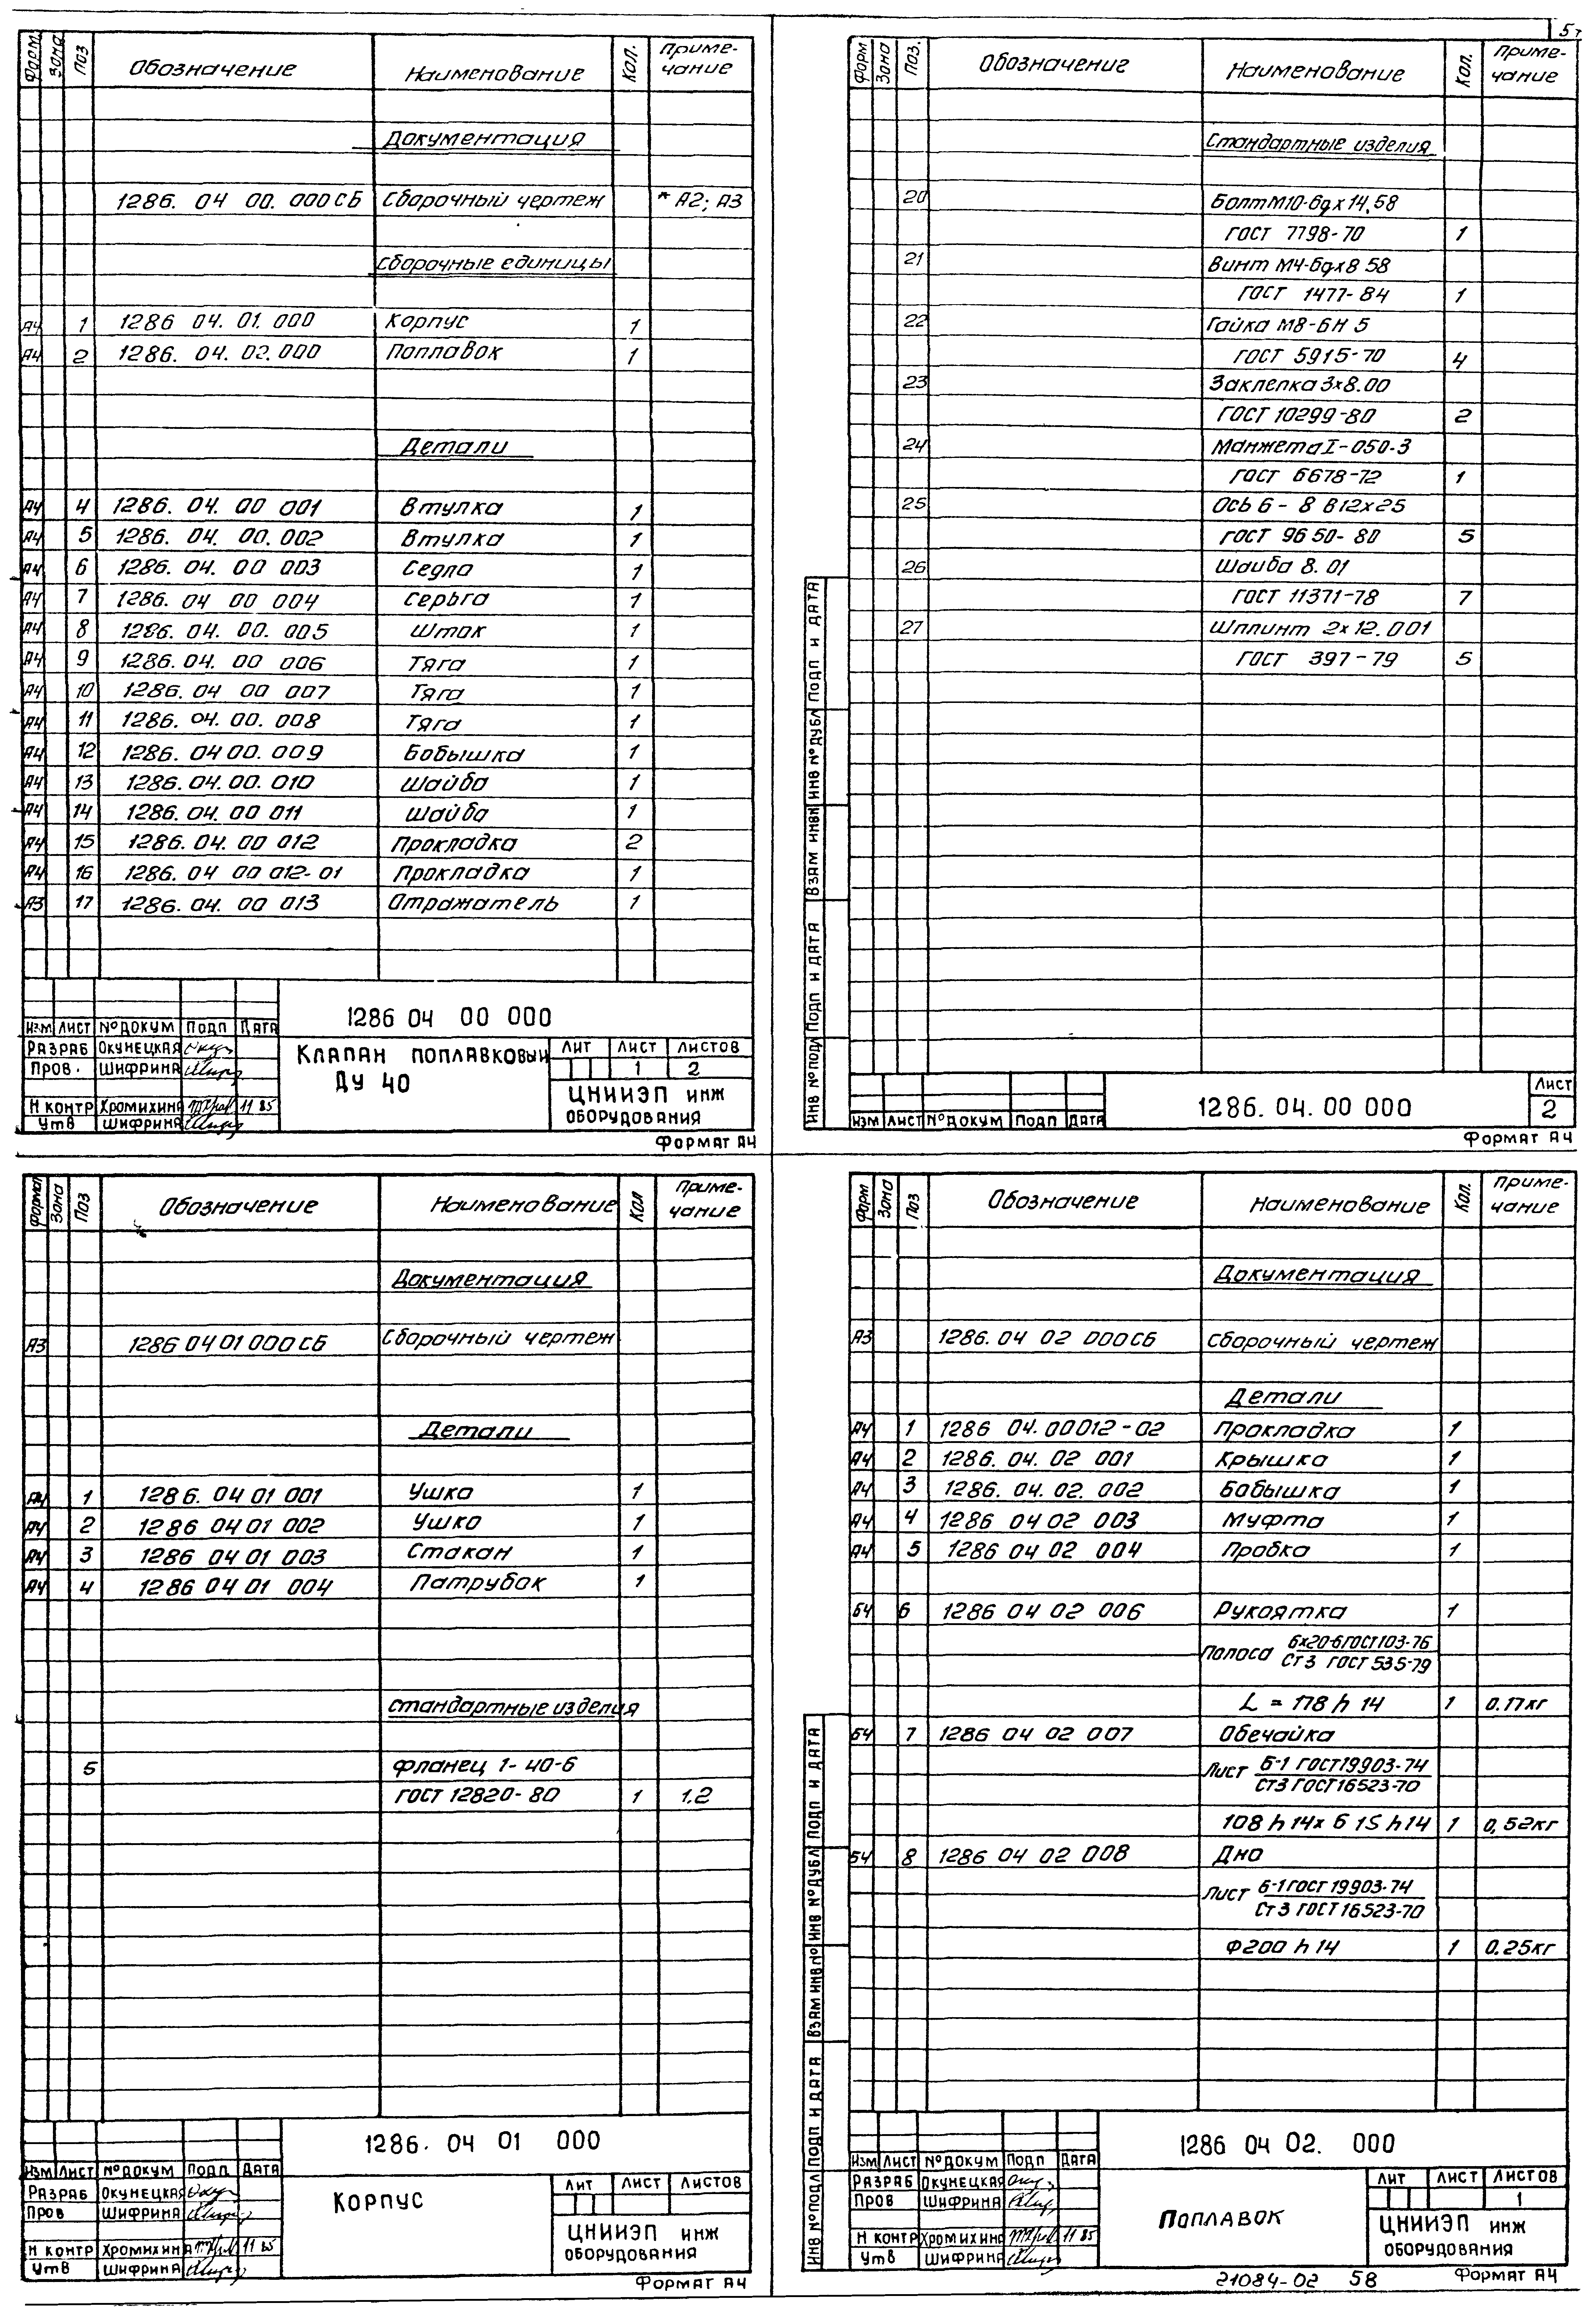 Форм. Зона Поз Обозначение Наименование Кол. Приме-чание
Документация
1286. 04 00. 000СБ Сборочный чертеж * А2; А3
Сборочные единицы
А4 1 1286 04. 01. 000 Корпус 1
А4 2 1286. 04. 02. 000 Поплавок 1
Детали
А4 4 1286. 04. 00 001 Втулка 1
А4 5 1286. 04. 00. 002 Втулка 1
А4 6 1286. 04. 00 003 Седло 1
А4 7 1286. 04 00 004 Серьга 1
А4 8 1286. 04. 00. 005 Шток 1
А4 9 1286. 04. 00 006 Тяга 1
А4 10 1286. 04 00 007 Тяга 1
А4 11 1286. 04. 00. 008 Тяга 1
А4 12 1286. 04 00. 009 Бобышка 1
А4 13 1286. 04. 00. 010 Шайба 1
А4 14 1286. 04. 00 011 Шайба 1
А4 15 1286. 04. 00 012 Прокладка 2
А4 16 1286. 04 00 012-01 Прокладка 1
А3 17 1286. 04. 00 013 Отражатель 1
1286 04 00 000
Изм Лист № докум Подп Дата
Разраб Окунецкая
Пров. Шифрина
Н контр Хромихина 11 85
Утв Шифрина
Клапан поплавковый
Ду 40
Лит Лист Листов
1 2
ЦНИИЭП инж
оборудования
Формат А4
Форм Зона Поз. Обозначение Наименование Кол. Приме-чание
Стандартные изделия
20 Болт М10-6gх14.58
ГОСТ 7798-70 1
21 Винт М4-6gх8 58
ГОСТ 1477-84 1
22 Гайка М8-6Н 5
ГОСТ 5915-70 4
23 Заклепка 3х8.00
ГОСТ 10299-80 2
24 Манжета I-050-3
ГОСТ 6678-72 1
25 Ось 6-8 В12х25
ГОСТ 9650-80 5
26 Шайба 8. 01
ГОСТ 11371-78 7
27 Шплинт 2х12.001
ГОСТ 397-79 5
Инв № подл Подп и дата Взам инв № Инв № дубл Подп и дата
Изм Лист № докум Подп Дата
1286. 04. 00 000
Лист
2
Формат А4
Формат Зона Поз Обозначение Наименование Кол Приме-чание
Документация
А3 1286 04 01 000 СБ Сборочный чертеж
Детали
А4 1 1286. 04 01 001 Ушко 1
А4 2 1286 04 01 002 Ушко 1
А4 3 1286 04 01 003 Стакан 1
А4 4 1286 04 01 004 Патрубок 1
Стандартные изделия
5 Фланец 1-40-6
ГОСТ 12820-80 1 1.2
1286. 04 01 000
Изм Лист № докум Подп Дата
Разраб Окунецкая
Пров Шифрина
Н контр Хромихина 11 85
Утв Шифрина
Корпус
Лит Лист Листов
ЦНИИЭП инж
оборудования
Формат А4
Форм Зона Поз Обозначение Наименование Кол. Приме-чание
Документация
А3 1286. 04 02 000 СБ Сборочный чертеж
Детали
А4 1 1286 04. 00012-02 Прокладка 1
А4 2 1286. 04. 02 001 Крышка 1
А4 3 1286. 04. 02. 002 Бобышка 1
А4 4 1286 04 02 003 Муфта 1
А4 5 1286 04 02 004 Пробка 1
Б4 6 1286 04 02 006 Рукоятка 1
Полоса 6х20-6 ГОСТ 103-76
Ст3 ГОСТ 535-79
L = 178 h 14 1 0.17кг
Б4 7 1286 04 02 007 Обечайка
Лист Б-1 ГОСТ 19903-74
Ст3 ГОСТ 16523-70
108 h 14х 6 15 h14 1 0,52кг
Б4 8 1286 04 02 008 Дно
Лист Б-1 ГОСТ 19903-74
Ст3 ГОСТ 16523-70
Ф200 h 14 1 0.25кг
Инв № подл Подп и дата Взам инв № Инв № дубл Подп и дата
1286 04 02. 000
Изм Лист № докум Подп Дата
Разраб Окунецкая
Пров Шифрина
Н контр Хромихина 11 85
Утв Шифрина
Поплавок
Лит Лист Листов
1
ЦНИИЭП инж
оборудования
21084-02 58 Формат А4